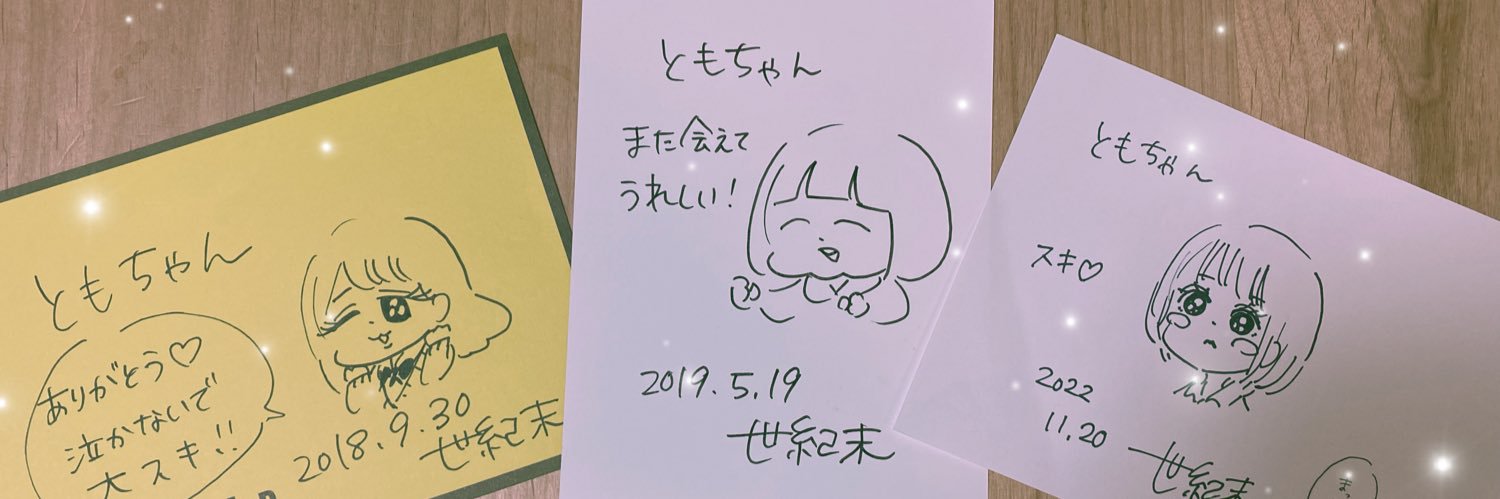 ともちゃん
ありがとう♡
泣かないで
大スキ!!
2018.9.30
世紀末
ともちゃん
また会えて
うれしい!
2019.5.19
世紀末
ともちゃん
スキ♡
2022
11.20
世紀末